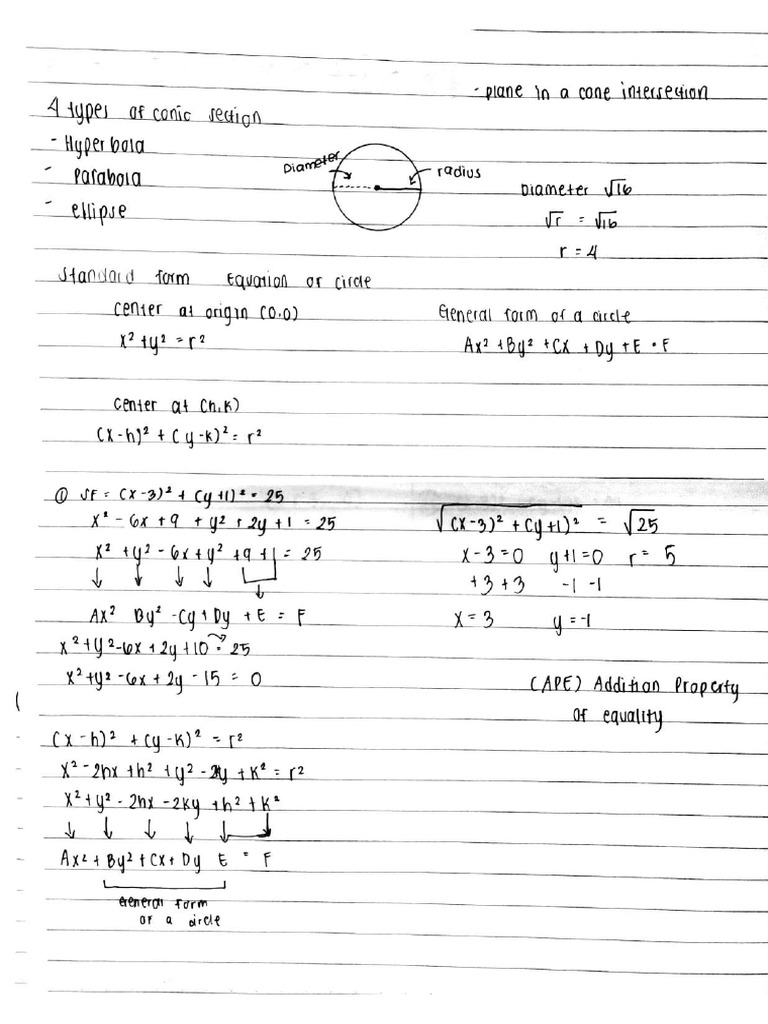 - plane in a cone intersection
4 types of conic section
- Hyperbola
- Parabola
- ellipse
Diameter
radius
Diameter √16
√r = √16
r = 4
Standard form Equation of circle
center at origin (0.0)
x² + y² = r²
General form of a circle
Ax² + By² + Cx + Dy + E = F
center at (h,k)
(x-h)² + (y-k)² = r²
① SF = (x-3)² + (y+1)² = 25
x² - 6x + 9 + y² + 2y + 1 = 25
x² + y² - 6x + y² + 9 + 1 = 25
Ax² By² - Cy + Dy + E = F
x² + y² - 6x + 2y + 10 = 25
x² + y² - 6x + 2y - 15 = 0
√(x-3)² + (y+1)² = √25
x - 3 = 0 y + 1 = 0 r = 5
+3 +3 -1 -1
x = 3 y = -1
(APE) Addition Property
of equality
(x - h)² + (y - k)² = r²
x² - 2hx + h² + y² - 2ky + k² = r²
x² + y² - 2hx - 2ky + h² + k²
Ax² + By² + Cx + Dy E = F
General form
of a circle